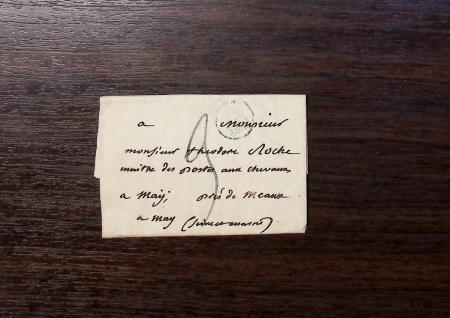 a Monsieur
monsieur theodore Roche
maitre des postes aux chevaux,
a May, près de Meaux
a may (seine et marne)
3